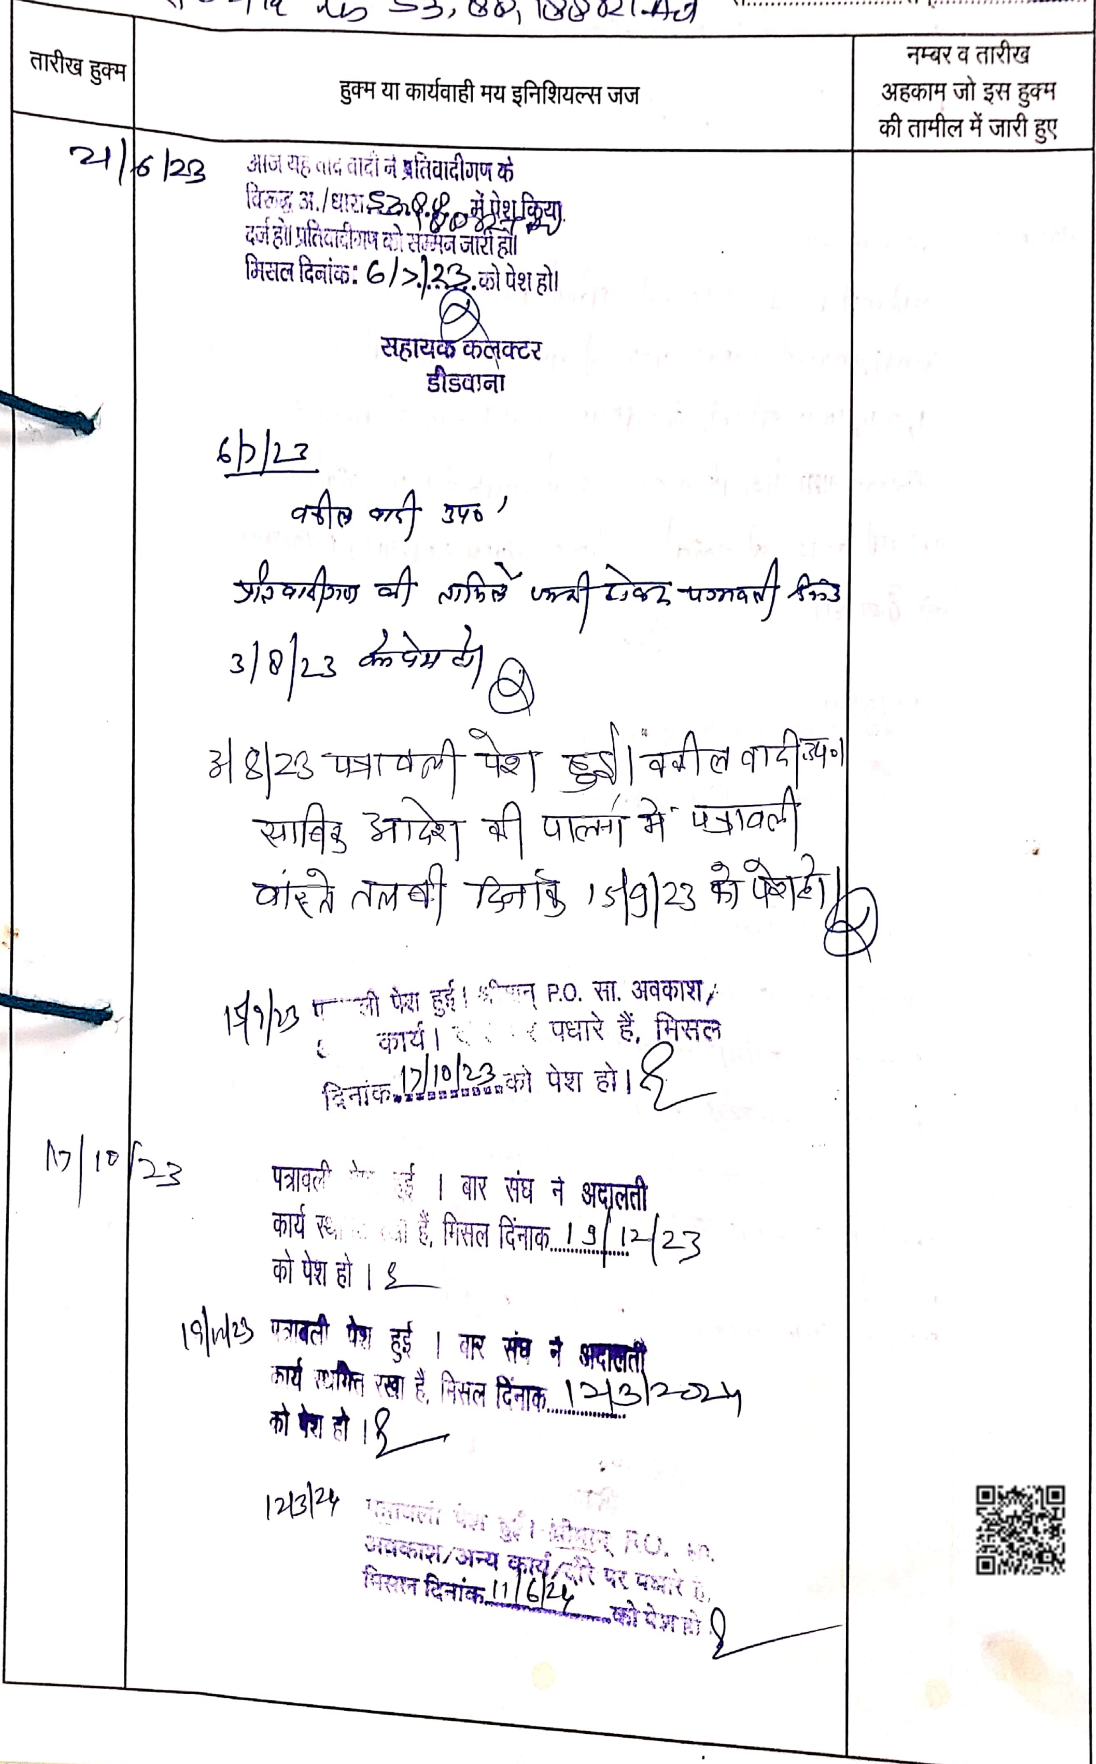 53, 88, 188 R.T.Act
तारीख हुक्म
हुक्म या कार्यवाही मय इनिशियल्स जज
नम्बर व तारीख
अहकाम जो इस हुक्म
की तामील में जारी हुए
21/6/23
आज यह वाद वादी ने प्रतिवादीगण के
विरूद्ध अ./धारा में पेश किया
दर्ज हो। प्रतिवादीगण को सम्मन जारी हो।
मिसल दिनांक: 6/7/23 को पेश हो।
सहायक कलेक्टर
डीडवाना
6/7/23
वकील वादी उप०
प्रतिवादीगण की तामिलें जारी होकर पत्रावली दिनांक
3/8/23 को पेश हो।
3/8/23 पत्रावली पेश हुई। वकील वादी उप०।
साबिक आदेश की पालना में पत्रावली
वास्ते तलबी दिनांक 15/9/23 को पेश हो।
15/9/23 पेश हुई। श्रीमान् P.O. सा. अवकाश/
कार्य। पधारे हैं, मिसल
दिनांक 17/10/23 को पेश हो।
17/10/23
पत्रावली पेश हुई । बार संघ ने अदालती
कार्य है, मिसल दिंनाक 19/12/23
को पेश हो ।
19/12/23 पत्रावली पेश हुई । बार संघ ने अदालती
कार्य स्थगित रखा है, मिसल दिंनाक 12/3/2024
को पेश हो ।
12/3/24 पत्रावली पेश हुई। श्रीमान् P.O. सा.
अवकाश/अन्य कार्य/दौरे पर पधारे है,
मिसल दिनांक 11/6/24 को पेश हो